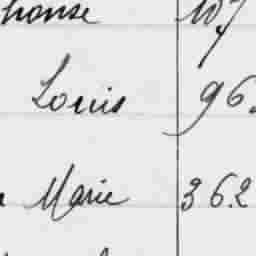 phonse 107
Louis 96.
Marie 362